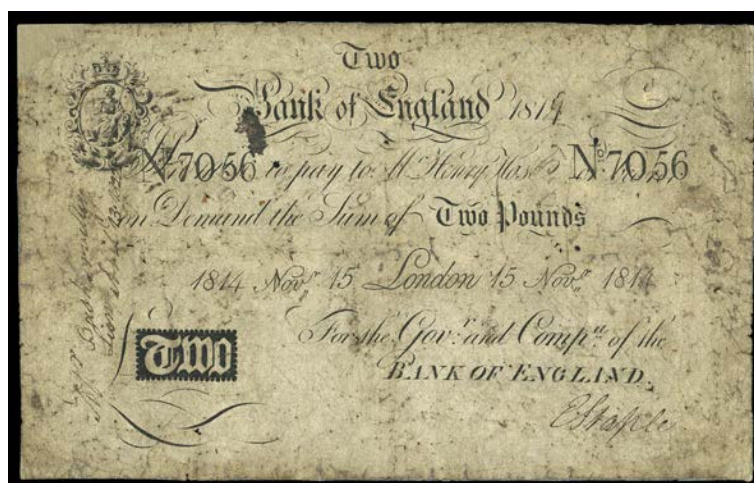 Two
Bank of England 1814
No 7056 to pay to Mr Henry Hase No 7056
on Demand the Sum of Two Pounds
1814 Novr 15 London 15 Novr 1814
For the Govr and Compa of the
£ Two BANK OF ENGLAND.
E Staple